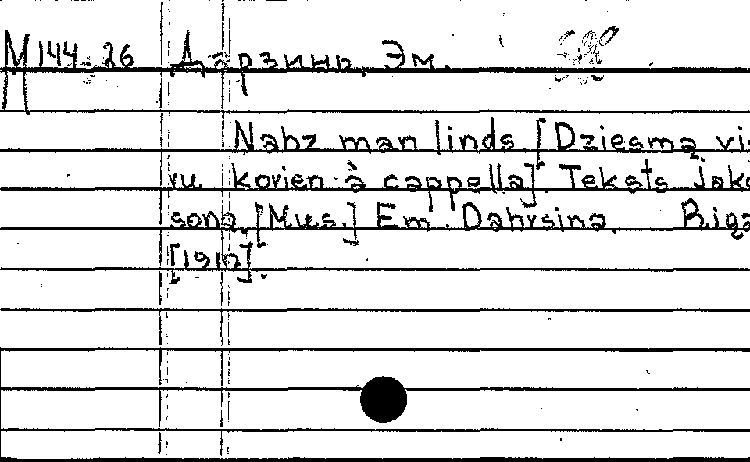 М 144-26 Дарзинь, Эм.
Nahz man linds [Dziesma vi-
ru korien à cappella]. Teksts Jako-
sona. [Mus.] Em. Dahrsina. Riga
[1910].